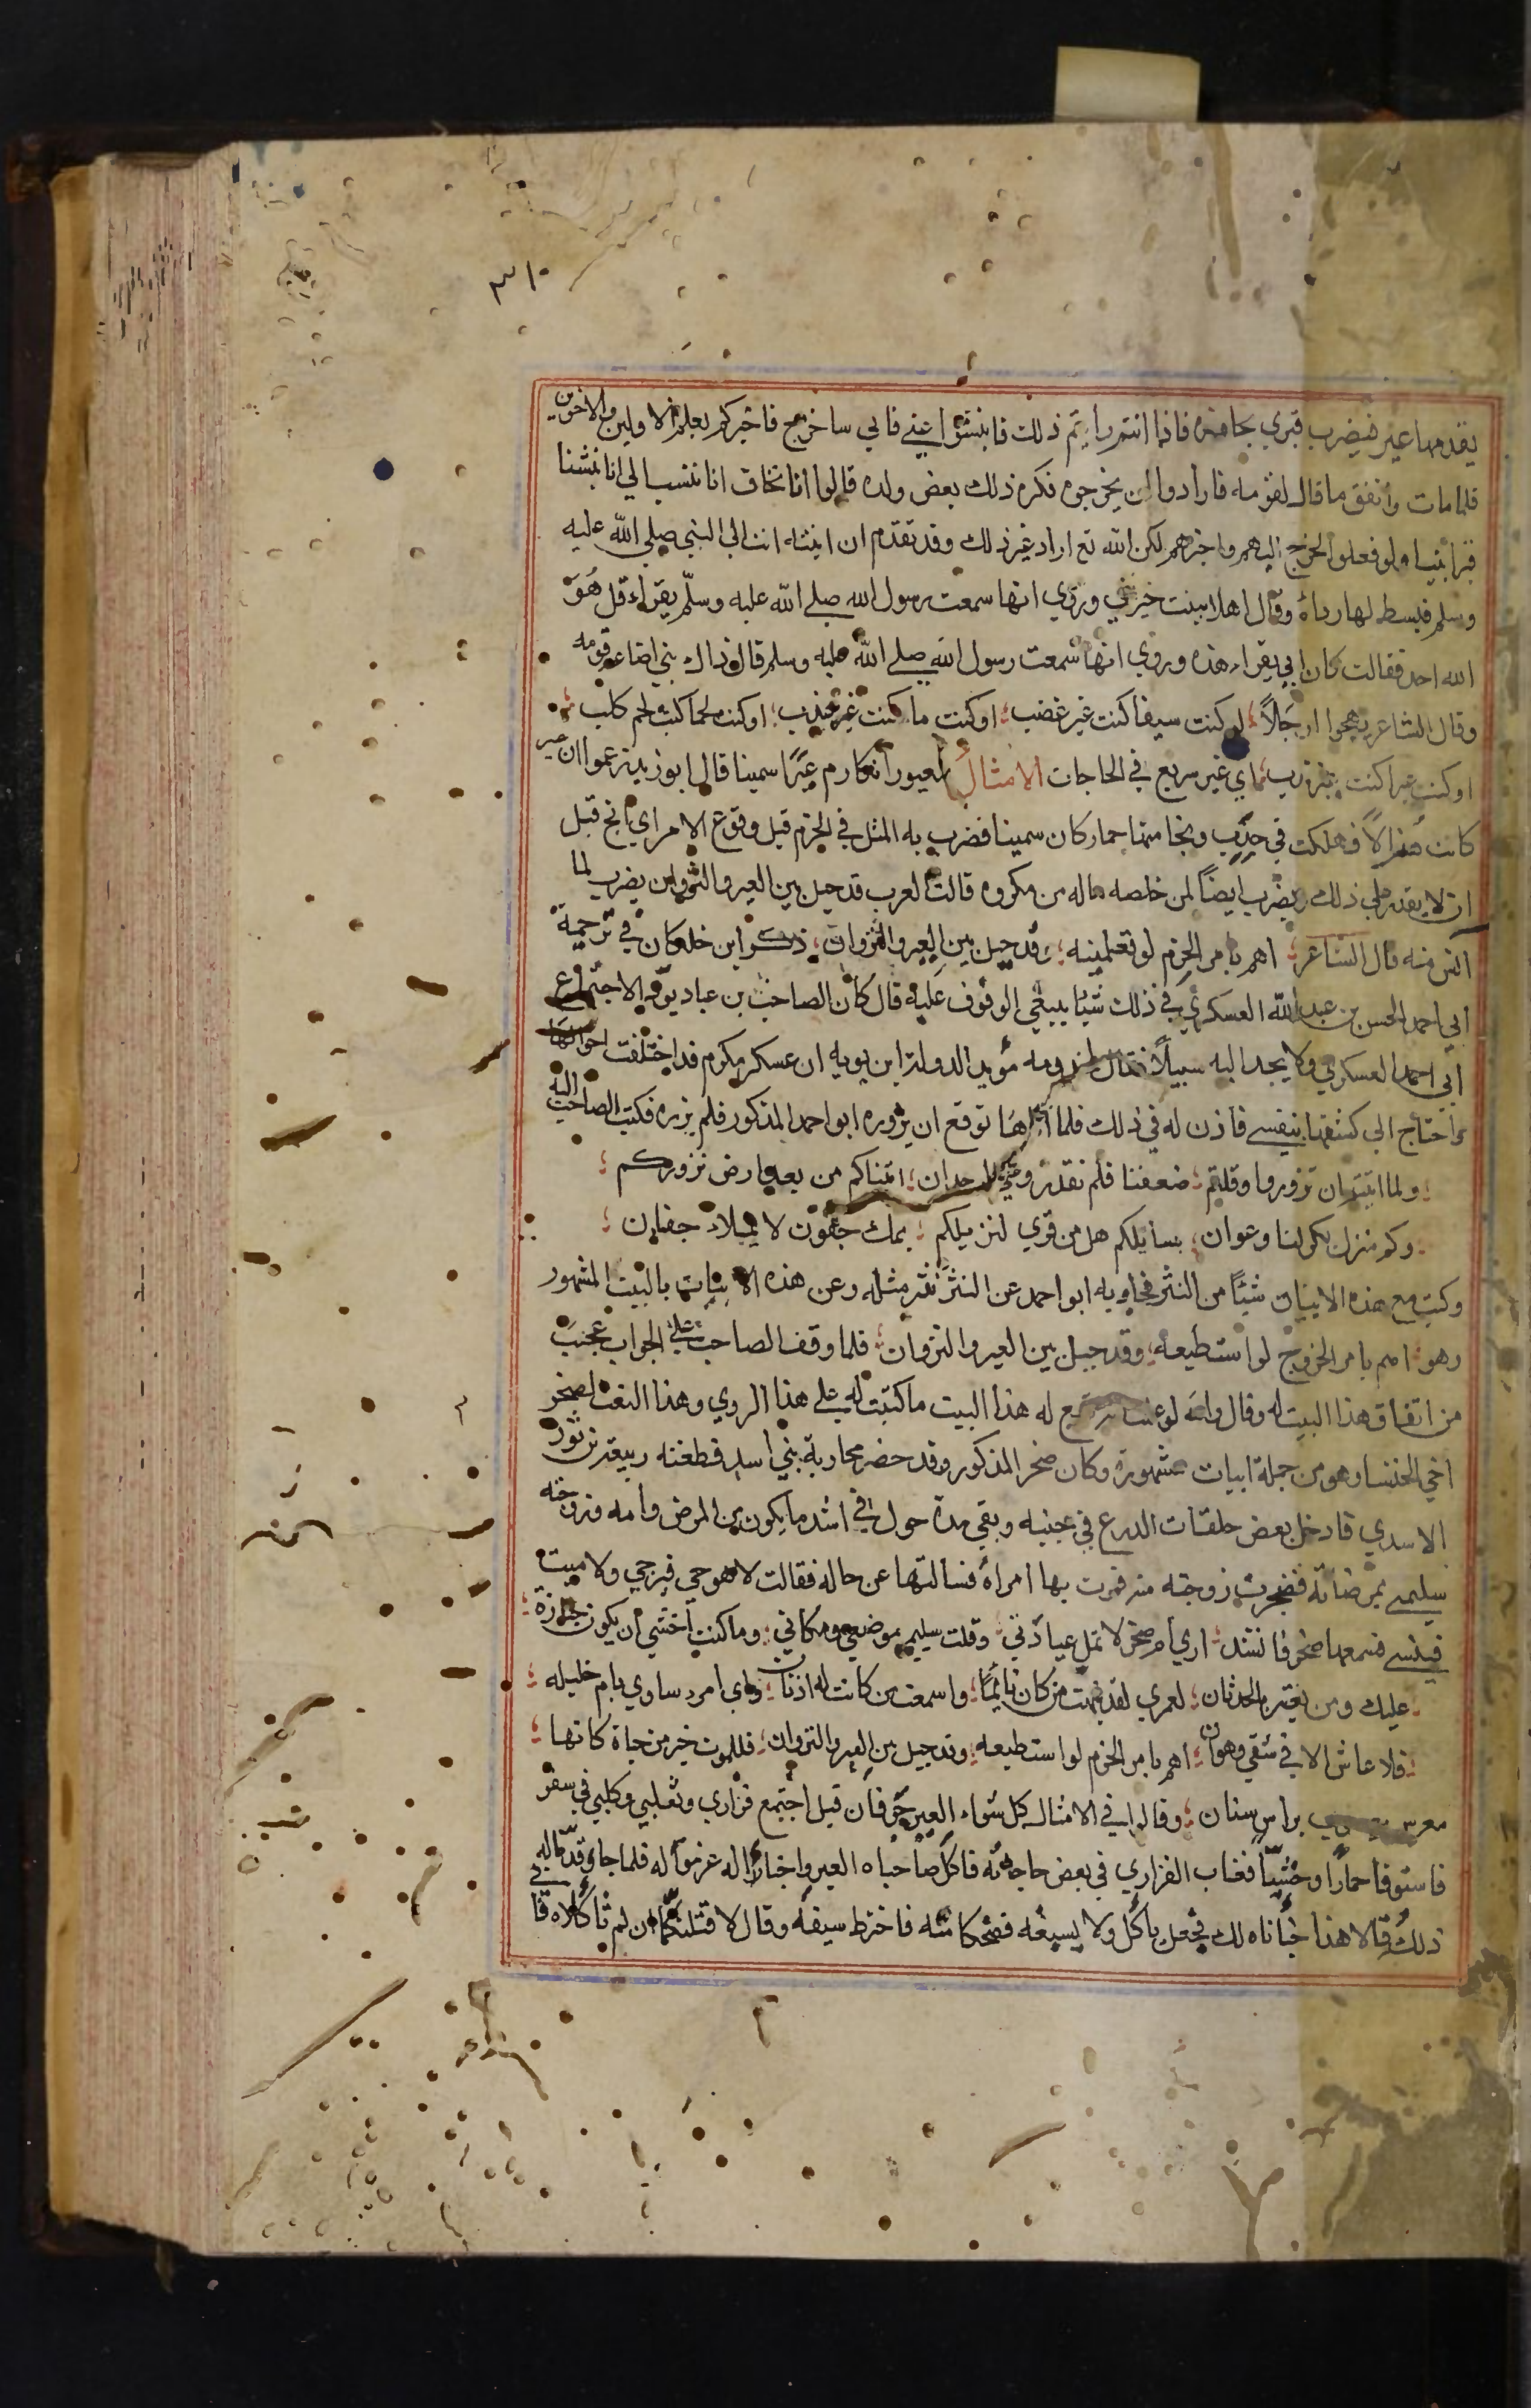 ٣١٠
يقدمها عير فيضرب قبري بحافره فاذا انتم رايتم ذلك فانبشوا عني فاني ساخرج فاخبركم بعلم الاولين والاخرين
فلما مات واتفق ما قال لقومه فارادوا ان يخرجوه فكره ذلك بعض ولده قالوا انا نخاف انا ننسب الي انا نبشنا
قبر ابينا ولو فعلوا لخرج اليهم واخبرهم لكن الله تع اراد غير ذلك وقد تقدم ان ابنته اتت الي النبي صلي الله عليه
وسلم فبسط لها رداءه وقال اهلا ببنت خير نبي وروي انها سمعت رسول الله صلي الله عليه وسلم يقراء قل هُوَ
الله احد فقالت كان ابي يقراء هذه وروي انها سمعت رسول الله صلي الله عليه وسلم قال ذاك نبي اضاعه قومه
وقال الشاعر يهجوا رجَلاً لو كنت سيفا كنت غير غضب او كنت ما كنت غير عذب او كنت لحما كنت لحم كلب
او كنت عيرا كنت غير ندب اي غير سريع في الحاجات الامثال لمعيورا تكادم عَيرًا سمينا قال ابو زيد زعموا ان حمر
كانت هُزالاً فهلكت في جدب ونجا منها حمار كان سمينا فضرب به المثل في الحزم قبل وقوع الامر اي انج قبل
ان لا يقدر علي ذلك ويضرب ايضاً لمن خلصه ماله من مكروه قالت العرب قد حيل بين العير والنزوان يضرب لما
الشاعر اهم بامر الحزم لو تعلمينه وقد حيل بين العير والنزوان ذكر ابن خلكان في ترجمة
ابي احمد الحسن بن عبد الله العسكري في ذلك شيًا ينبغي الوقوف عليه قال كان الصاحب بن عباد يود الاجتماع
ابي احمد العسكري ولا يجد اليه سبيلاً فقال لمخدومه مؤيد الدولة ابن بويه ان عسكر مكرم قد اختلفت احوالها
واحتاج الي كشفها بنفسي فاذن له في ذلك فلما اتاها توقع ان يزوره ابو احمد المذكور فلم يزره فكتب الصاحب اليه
ولما ابيتم ان تزوروا وقلتم ضعفنا فلم نقدر علي الوحدان اتيناكم من بعد ارض نزوركم
وكم منزل بكر لنا وعوان نسايلكم هل من قري لنزيلكم بملء جفون لا بملاء جفان
وكتب مع هذه الابيات شيئًا من النثر فجاوبه ابو احمد عن النثر نثر مثله وعن هذه الابيات بالبيت المشهور
وهو اهم بامر الحزم لو استطيعه وقد حيل بين العير والنزوان فلما وقف الصاحب علي الجواب عجب
من اتفاق هذا البيت له وقال والله لو علمت له هذا البيت ما كتبت له علي هذا الروي وهذا البيت لصخر
اخي الخنسا وهو من جملة ابيات مشهورة وكان صخر المذكور قد حضر محاربة بني اسد فطعنه ربيعة بن ثور
الاسدي فادخل بعض حلقات الدرع في جنبه وبقي مدة حول في اشد ما يكون من المرض وامه وزوجته
سليمي يمرضانه فضجرت زوجته منه فمرت بها امراة فسالتها عن حاله فقالت لا هو حي فيرجي ولا ميت
فينسي فسمعها صخر فانشد اري ام صخر لا تمل عيادتي وملت سليمي موضعي ومكاني وما كنت اخشي ان يكون جنازة
عليك ومن يغتر بالحدثان لعمري لقد نبهت من كان نائمًا واسمعت من كانت له اذنان واي امرء ساوي بام خليله
فلا عاش الا في شقي وهوان اهم بامر الحزم لو استطيعه وقد حيل بين العير والنزوان فللموت خير من حياة كانها
معرس براس سنان وقالوا في الامثال كل شواء العير جوفان قيل اجتمع فزاري وتغلبي وكلبي في سفر
فاستوفا حمارًا وحشيًا فغاب الفزاري في بعض حاجاته فاكل صاحباه العير واخبئا له غرموله فلما جاء قدماه له في
ذلك وقالا هذا خباناه لك فجعل ياكل ولا يسيغه فضحكا منه فاخترط سيفه وقال لا قتلنكما ان لم تاكلاه فا